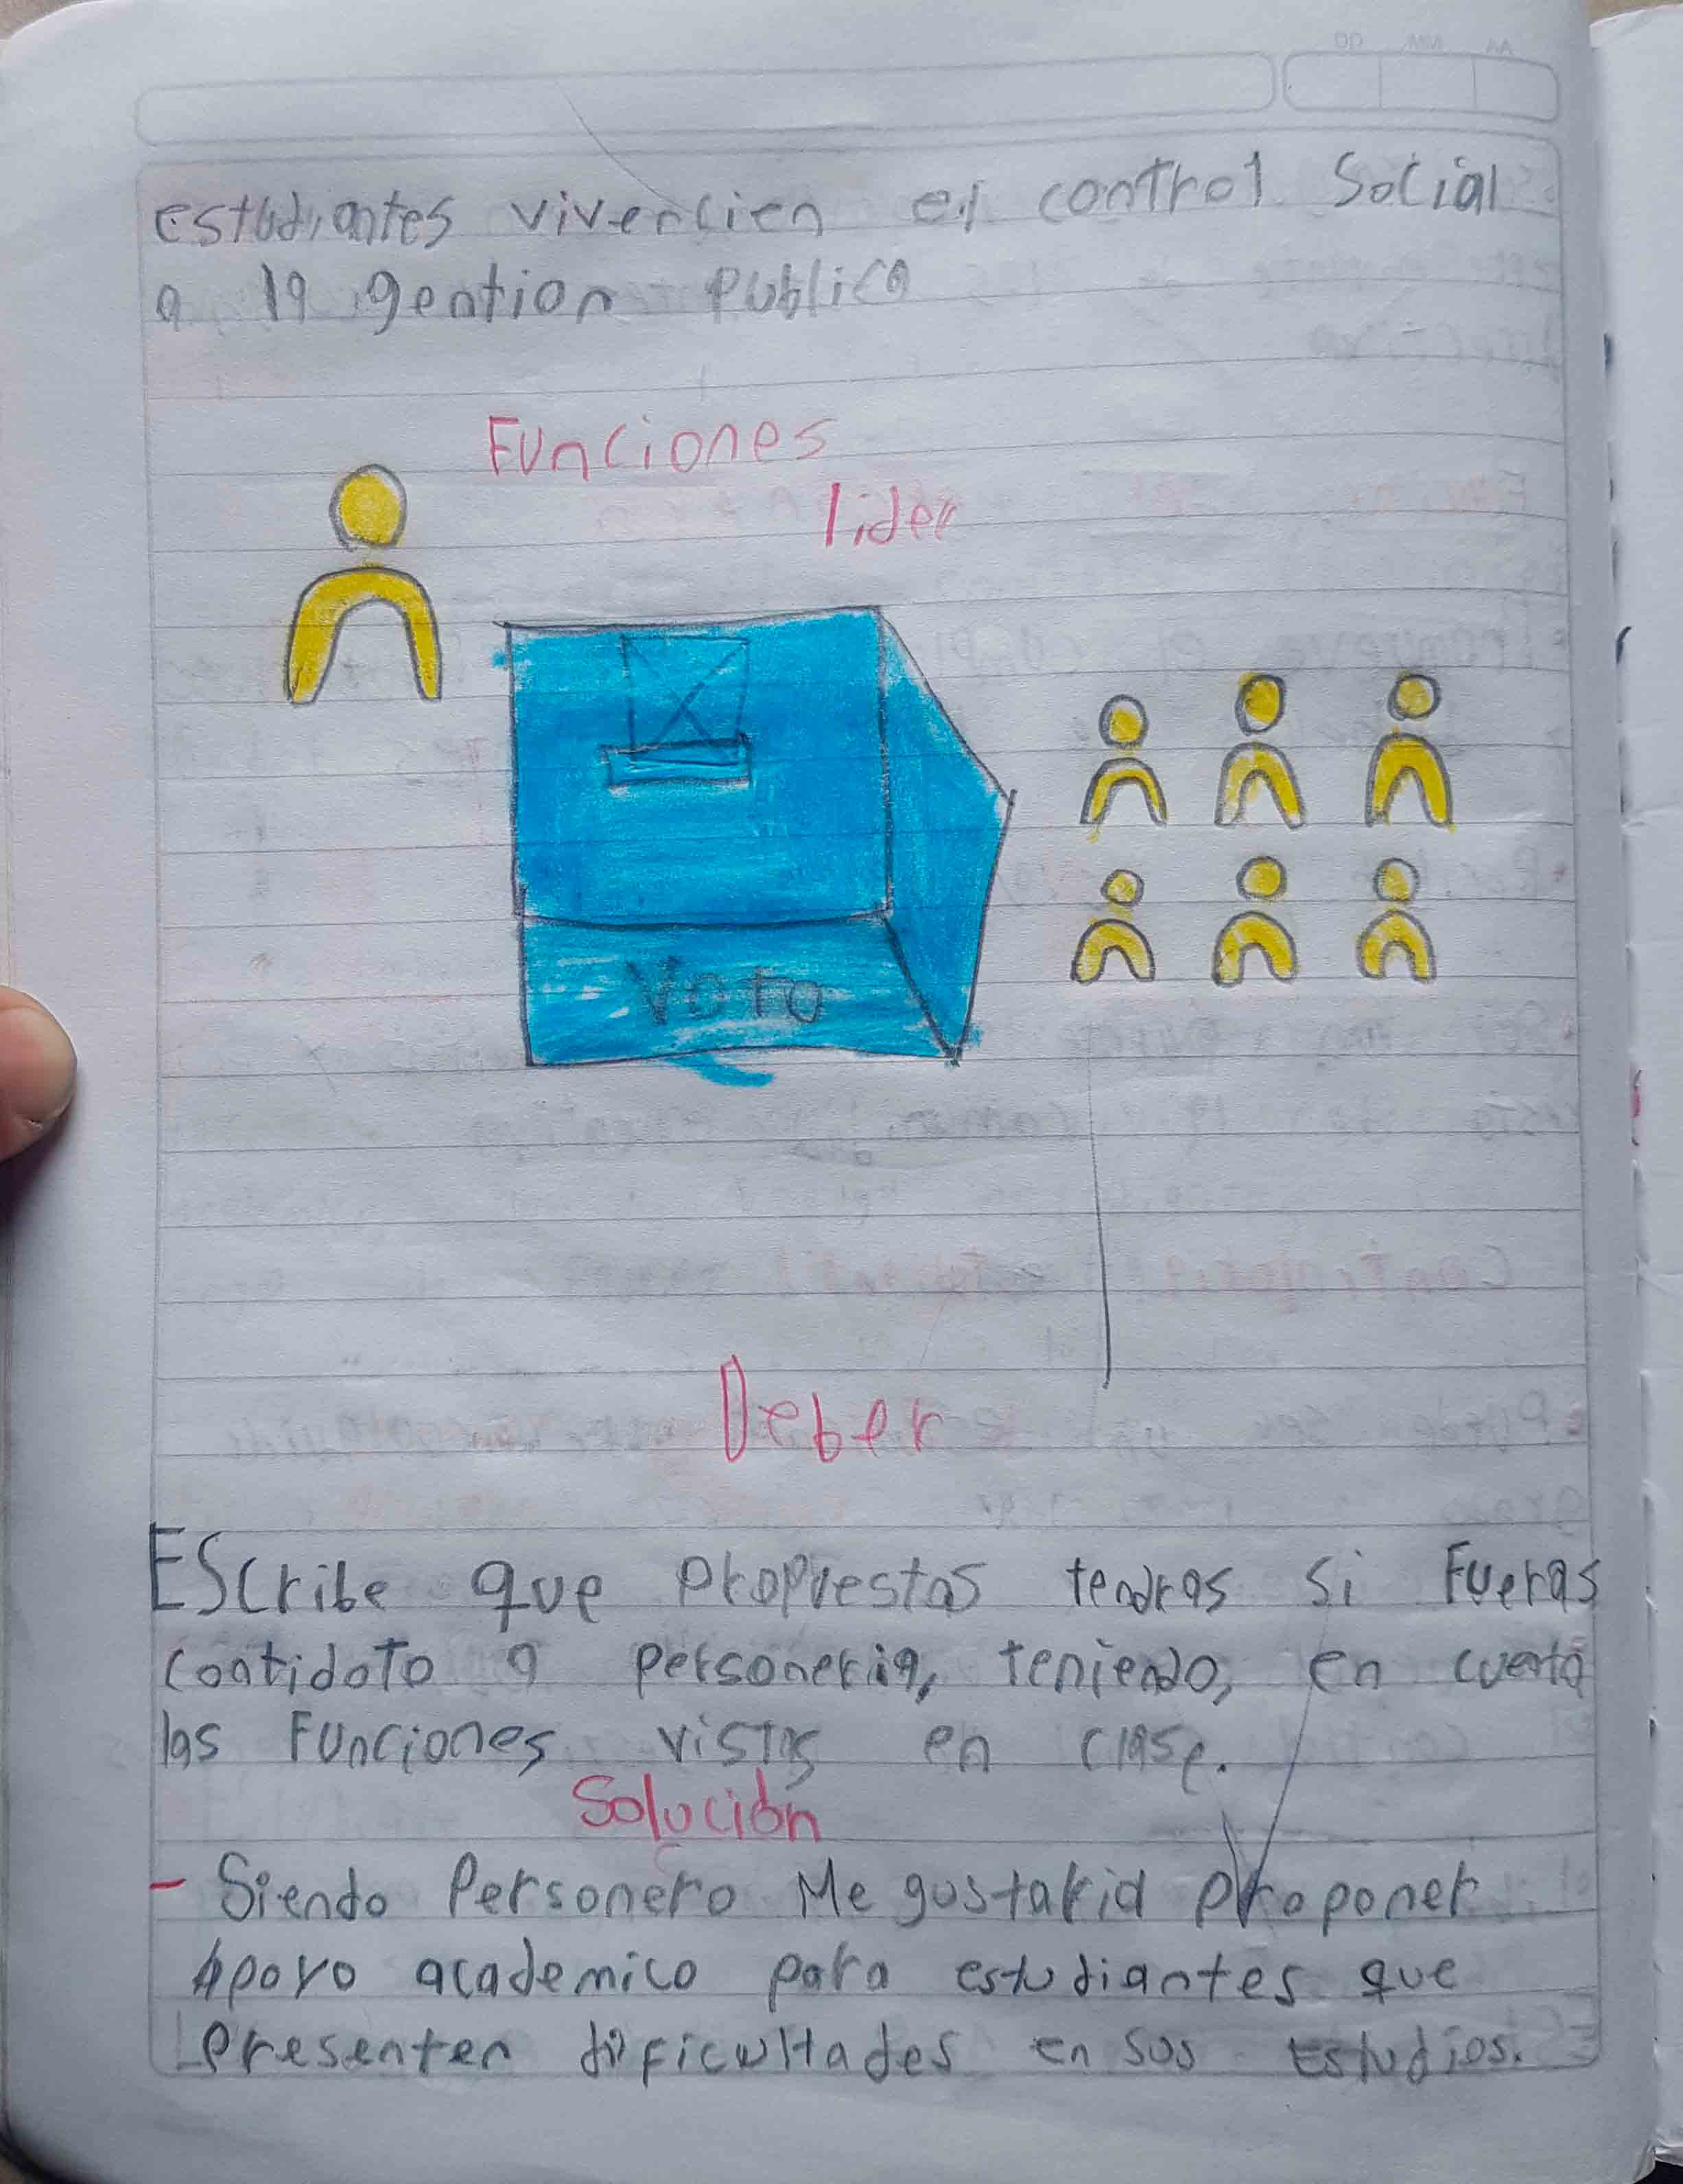 estudiantes vivencien el control Social
a la gention publica
Funciones
lider
Voto
EScribe que propuestas tendras si Fueras
contidato a personeria, teniendo, en cuenta
las Funciones vistas en clase.
Solución
- Siendo Personero Me gustaria proponer
Apoyo academico para estudiantes que
presenten dificultades en sus Estudios.